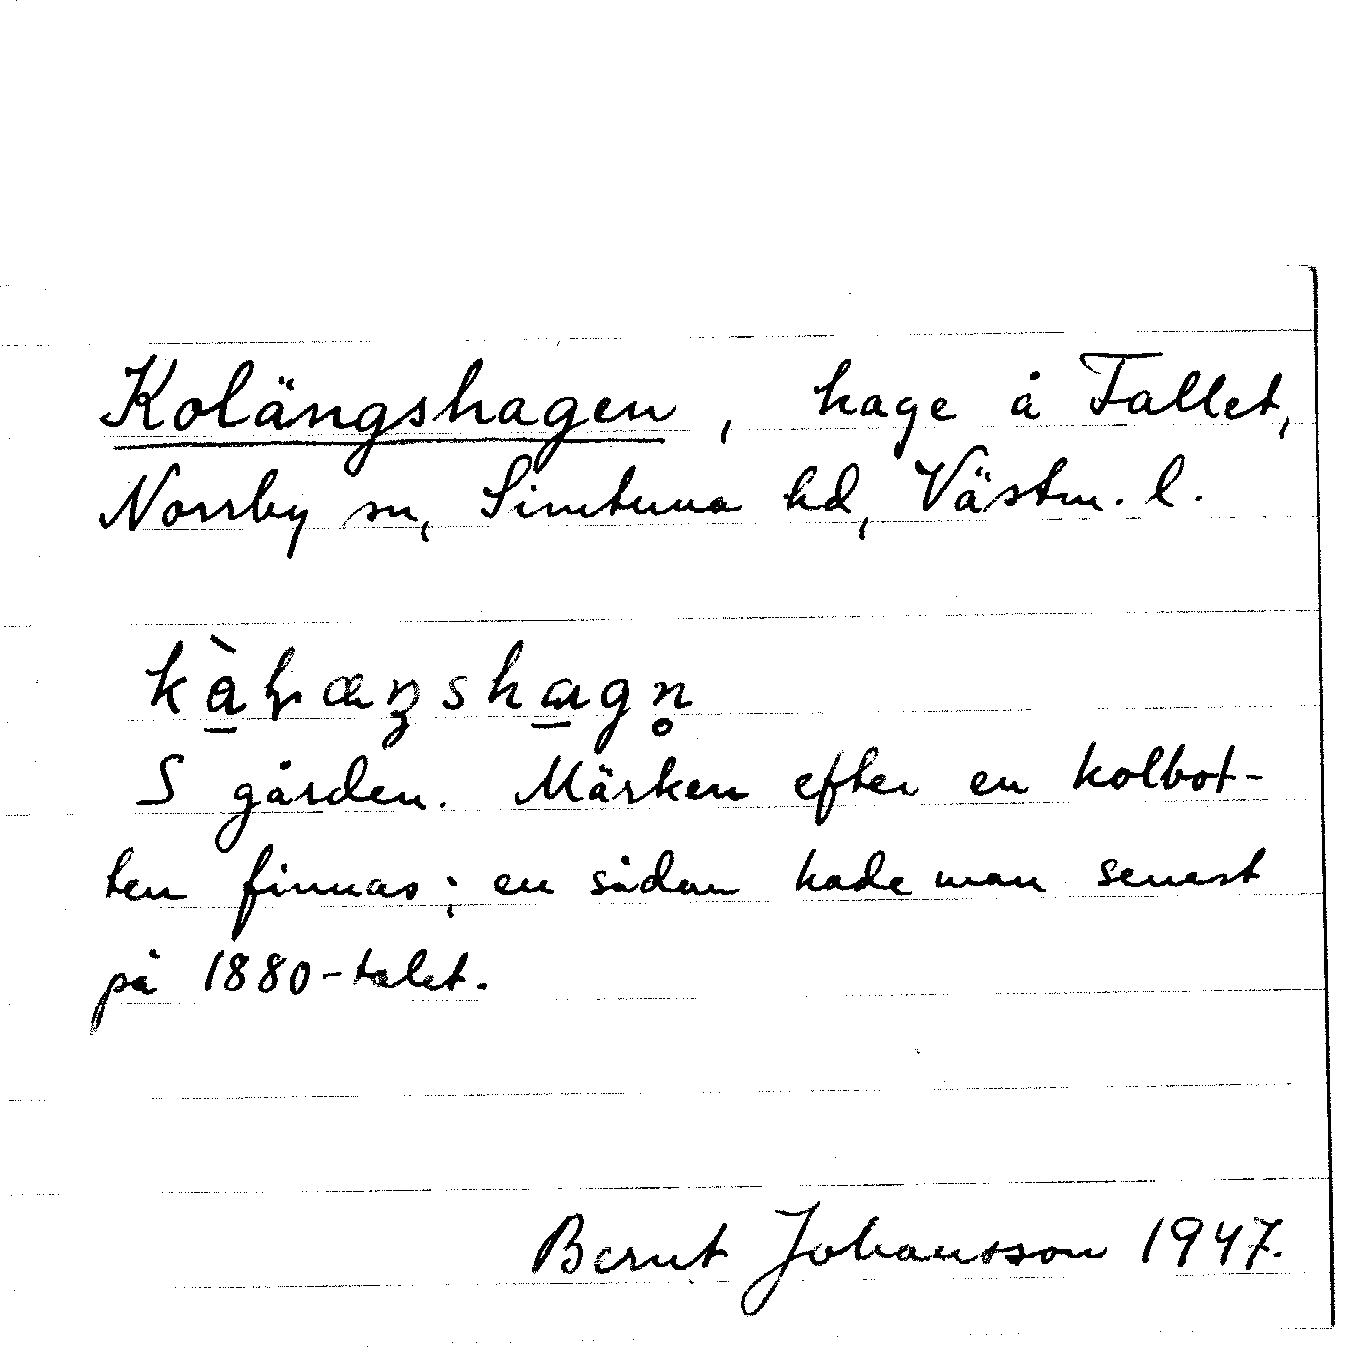 Kolängshagen, hage å Tallet,
Norrby sn, Simtuna hd, Västm. l.
kàlæŋshagn̥
S gården. Märken efter en kolbot-
ten finnas; en sådan hade man senast
på 1880-talet.
Bernt Johansson 1947.